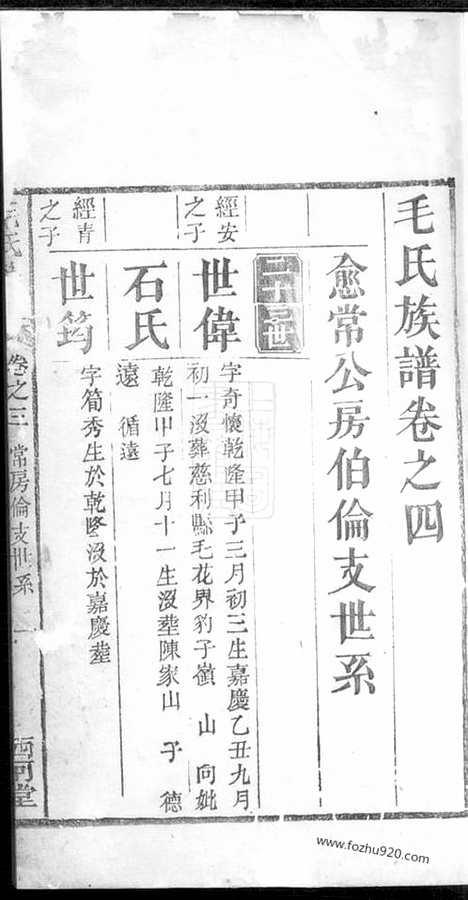 毛氏族譜卷之四
愈常公房伯倫支世系
二十世
經安之子
世偉
字奇懷乾隆甲子三月初三生嘉慶乙丑九月
初一沒葬慈利縣毛花界豹子嶺 山 向妣
石氏
乾隆甲子七月十一生沒塟陳家山 子 德
遠 循遠
經青之子
世筠
字筍秀生於乾隆沒於嘉慶塟
卷之三 常房倫支世系 一
西河堂
www.fozhu920.com